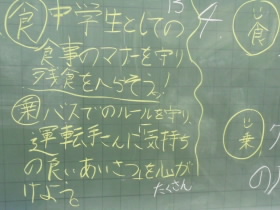 食 中学生としての
食事のマナーを守り
残食をへらそう!
乗 バスでのルールを守り、
運転手さんに気持ち
の良いあいさつを心が
けよう
たくさん
13
4
じ
食
じ
乗